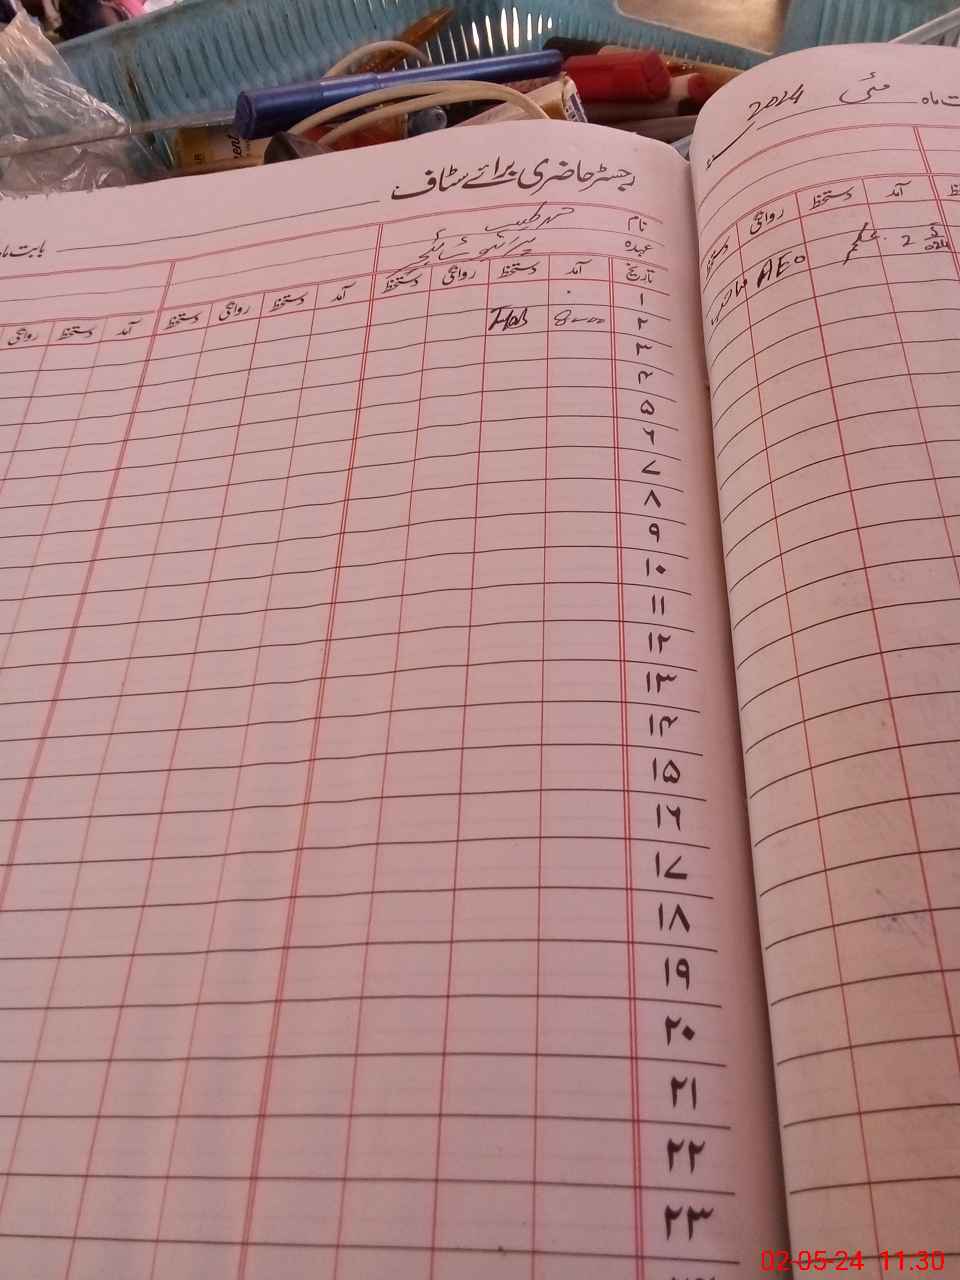 رجسٹر حاضری برائے سٹاف
بابت ماہ
نام
عہدہ
تاریخ آمد دستخط روانگی دستخط آمد دستخط روانگی دستخط آمد دستخط روانگی
۱
۲ 8-00
۳
۴
۵
۶
۷
۸
۹
۱۰
۱۱
۱۲
۱۳
۱۴
۱۵
۱۶
۱۷
۱۸
۱۹
۲۰
۲۱
۲۲
۲۳
ت ماہ مئی 2024
آمد دستخط روانگی دستخط
2 5 024
AEO
02-05-24 11.30